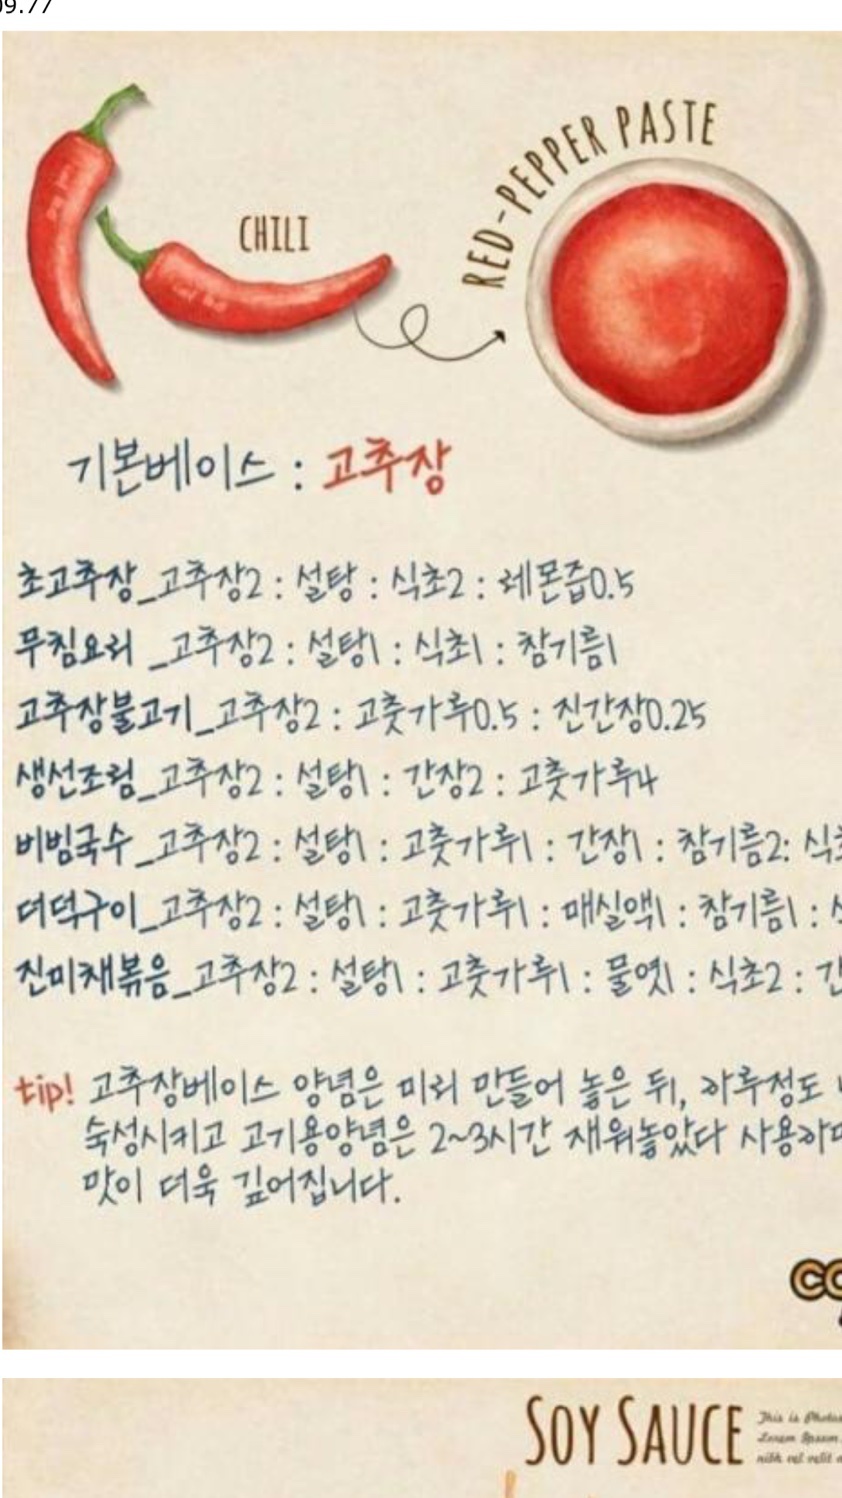 09.77
RED-PEPPER PASTE
CHILI
기본베이스 : 고추장
초고추장_고추장2 : 설탕 : 식초2 : 레몬즙0.5
무침요리 _고추장2 : 설탕1 : 식초1 : 참기름1
고추장불고기_고추장2 : 고춧가루0.5 : 진간장0.25
생선조림_고추장2 : 설탕1 : 간장2 : 고춧가루4
비빔국수_고추장2 : 설탕1 : 고춧가루1 : 간장1 : 참기름2:
더덕구이_고추장2 : 설탕1 : 고춧가루1 : 매실액1 : 참기름1 :
진미채볶음_고추장2 : 설탕1 : 고춧가루1 : 물엿1 : 식초2 :
tip! 고추장베이스 양념은 미리 만들어 놓은 뒤, 하루정도
숙성시키고 고기용양념은 2~3시간 재워놓았다
맛이 더욱 깊어집니다.
SOY SAUCE
This is
Lorem Ipsum
nibh vel velit